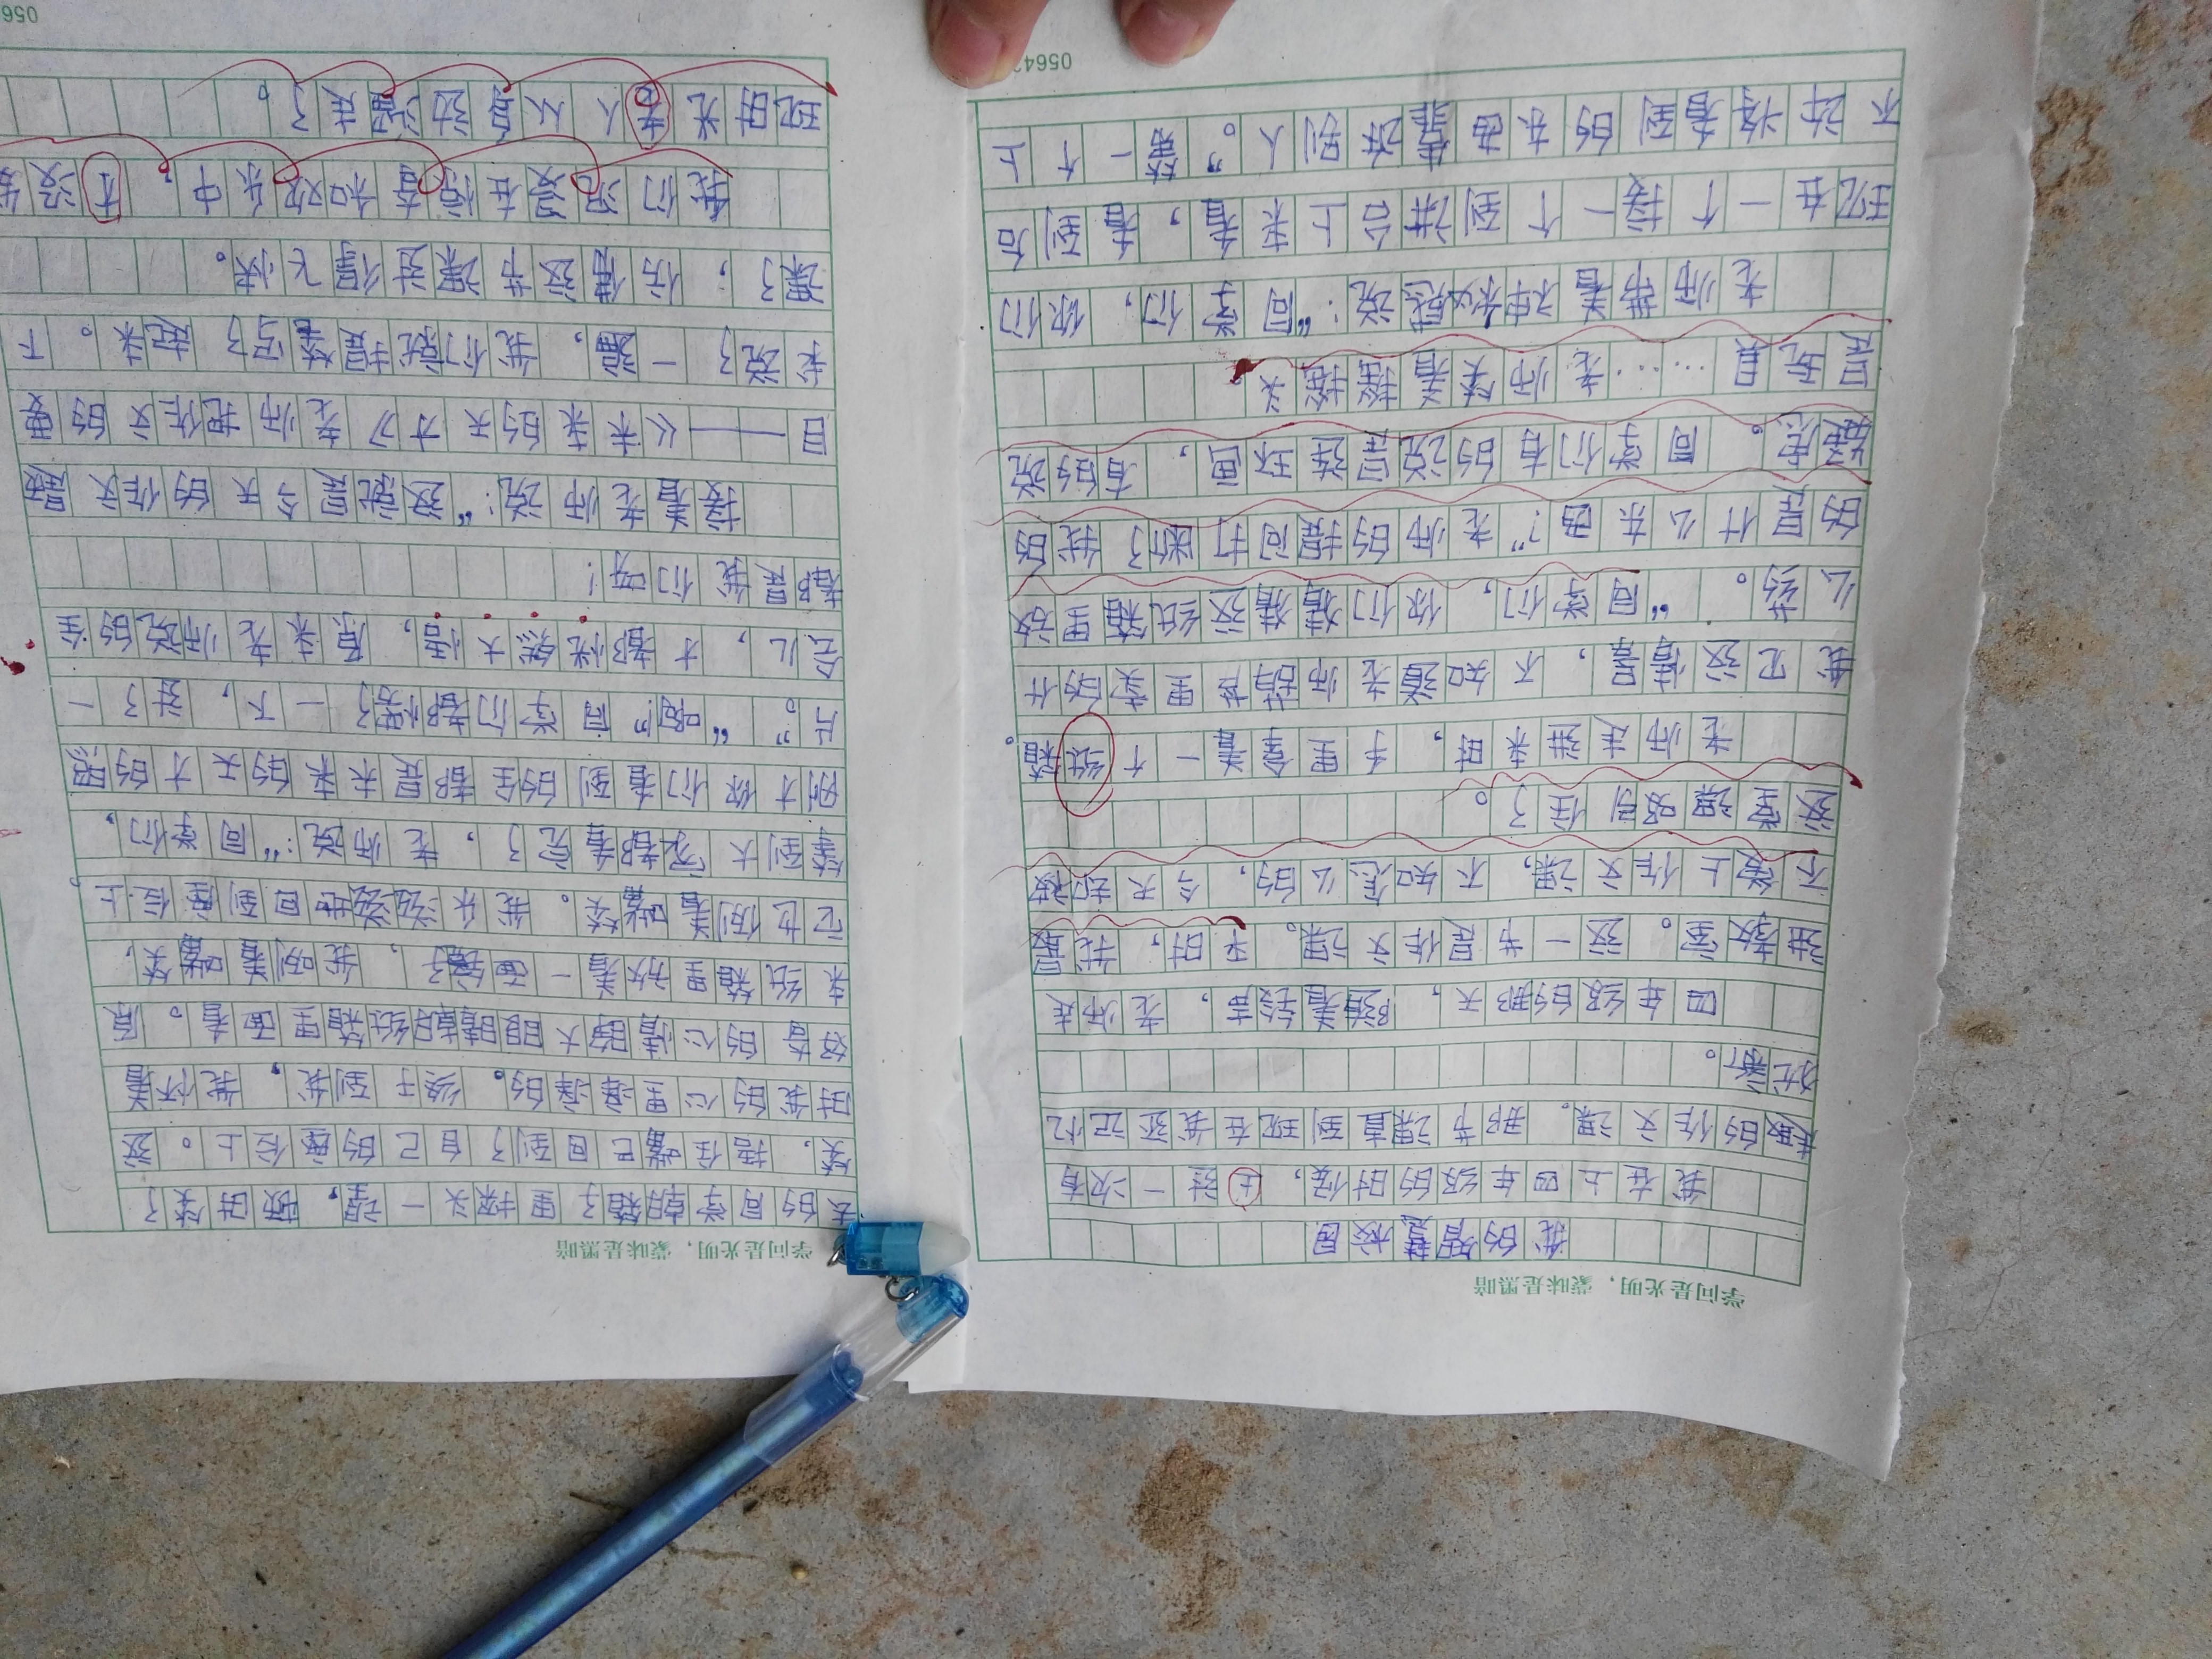 学问是光明，蒙昧是黑暗
我的智慧校园
我在上四年级的时候，上过一次有
趣的作文课。那节课直到现在我还记忆
犹新。
四年级的那天，随着铃声，老师走
进教室。这一节是作文课。平时，我最
不爱上作文课，不知怎么的，今天却被
这堂课吸引住了。
老师走进来时，手里拿着一个纸箱。
我见这情景，不知道老师葫芦里卖的什
么药。“同学们，你们猜猜这纸箱里放
的是什么东西？”老师的提问打断了我的
疑虑。同学们有的说是连环画，有的说
是玩具……老师笑着摇摇头。
老师带着神秘感说：“同学们，你们
现在一个接一个到讲台上来看，看到后
不许将看到的东西告诉别人。”第一个上
0564
学问是光明，蒙昧是黑暗
去的同学朝箱子里探头一望，顿时笑了
笑，捂住嘴巴回到了自己的座位上。这
时我的心里痒痒的。终于到我，我怀着
好奇的心情睁大眼睛朝纸箱里面看。原
来纸箱里放着一面镜子，我咧着嘴笑，
它也咧着嘴笑。我乐滋滋地回到座位上，
等到大家都看完了，老师说：“同学们，
刚才你们看到的全都是未来的天才的照
片”。“啊！”同学们都愣了一下，过了一
会儿，才都恍然大悟，原来老师说的全
都是我们呀！
接着老师说：“这就是今天的作文题
目——《未来的天才》老师把作文的要
求说了一遍，我们就提笔写了起来。下
课了，仿佛这节课过得飞快。
我们沉浸在惊奇和欢乐中，没发
现时光老人从身边溜走了。
056